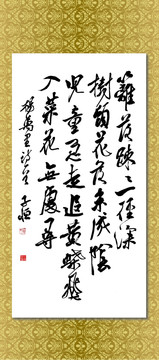 籬落踈〻一徑深
樹頭花落未成陰
兒童急走追黃蝶飛
入菜花無處尋
楊萬里詩